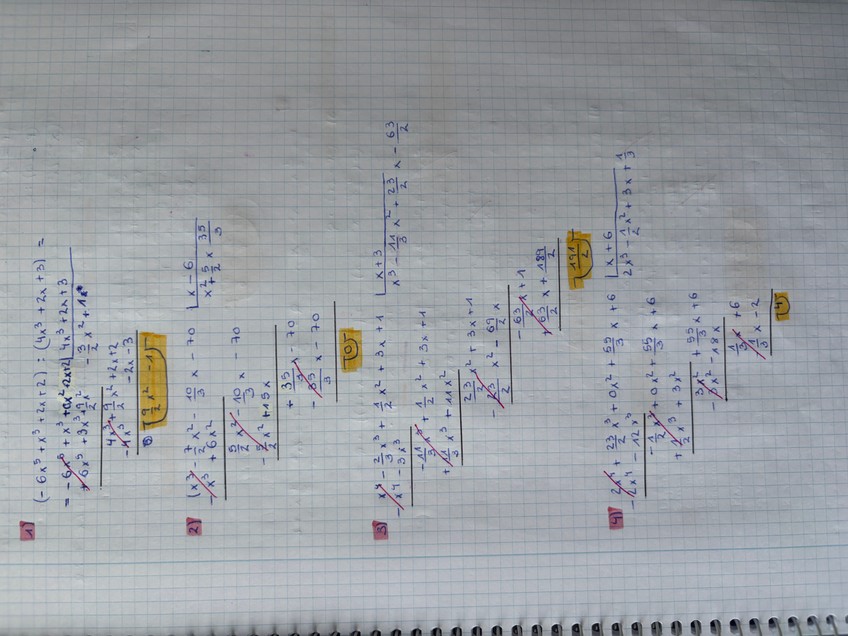 1) (-6x⁵ + x³ + 2x + 2) : (4x³ + 2x + 3) =
= -6x⁵ + x³ + 0x² + 2x + 2 | 4x³ + 2x + 3
+ 6x⁵ + 3x³ + 9/2 x² | -3/2 x² + 1
4x³ + 9/2 x² + 2x + 2
-4x³ - 2x - 3
9/2 x² - 1
2) (x³ - 7/2 x² - 10/3 x - 70 | x - 6
-x³ + 6x² | x² + 5/2 x 35/3
5/2 x² - 10/3 x - 70
-5/2 x² + 15x
+ 35/3 x - 70
- 35/3 x - 70
0
3) x⁴ - 2/3 x³ + 1/2 x² + 3x + 1 | x + 3
-x⁴ - 3x³ | x³ - 11/3 x² + 23/2 x - 63/2
-11/3 x³ + 1/2 x² + 3x + 1
+ 11/3 x³ + 11x²
23/2 x² + 3x + 1
- 23/2 x² - 69/2 x
- 63/2 x + 1
+ 63/2 x + 189/2
191/2
4) 2x⁴ + 23/2 x³ + 0x² + 55/3 x + 6 | x + 6
-2x⁴ - 12x³ | 2x³ - 1/2 x² + 3x + 1/3
-1/2 x³ + 0x² + 55/3 x + 6
+ 1/2 x³ + 3x²
3x² + 55/3 x + 6
- 3x² - 18x
1/3 x + 6
- 1/3 x - 2
4